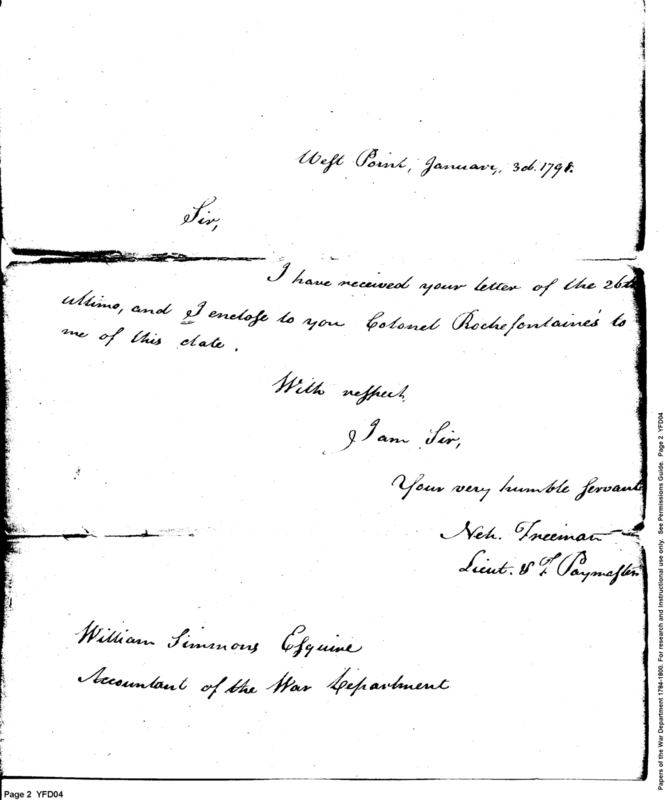 West Point, January, 3d. 1798.
Sir,
I have received your letter of the 26th
ultimo, and I enclose to you Colonel Rochefontaine's to
me of this date.
With respect
I am Sir,
Your very humble Servant
Neh. Freeman
Lieut. & Paymaster
William Simmons Esquire
Accountant of the War Department
Page 2 YFD04
Papers of the War Department 1784-1800. For research and Instructional use only. See Permissions Guide. Page 2 YFD04